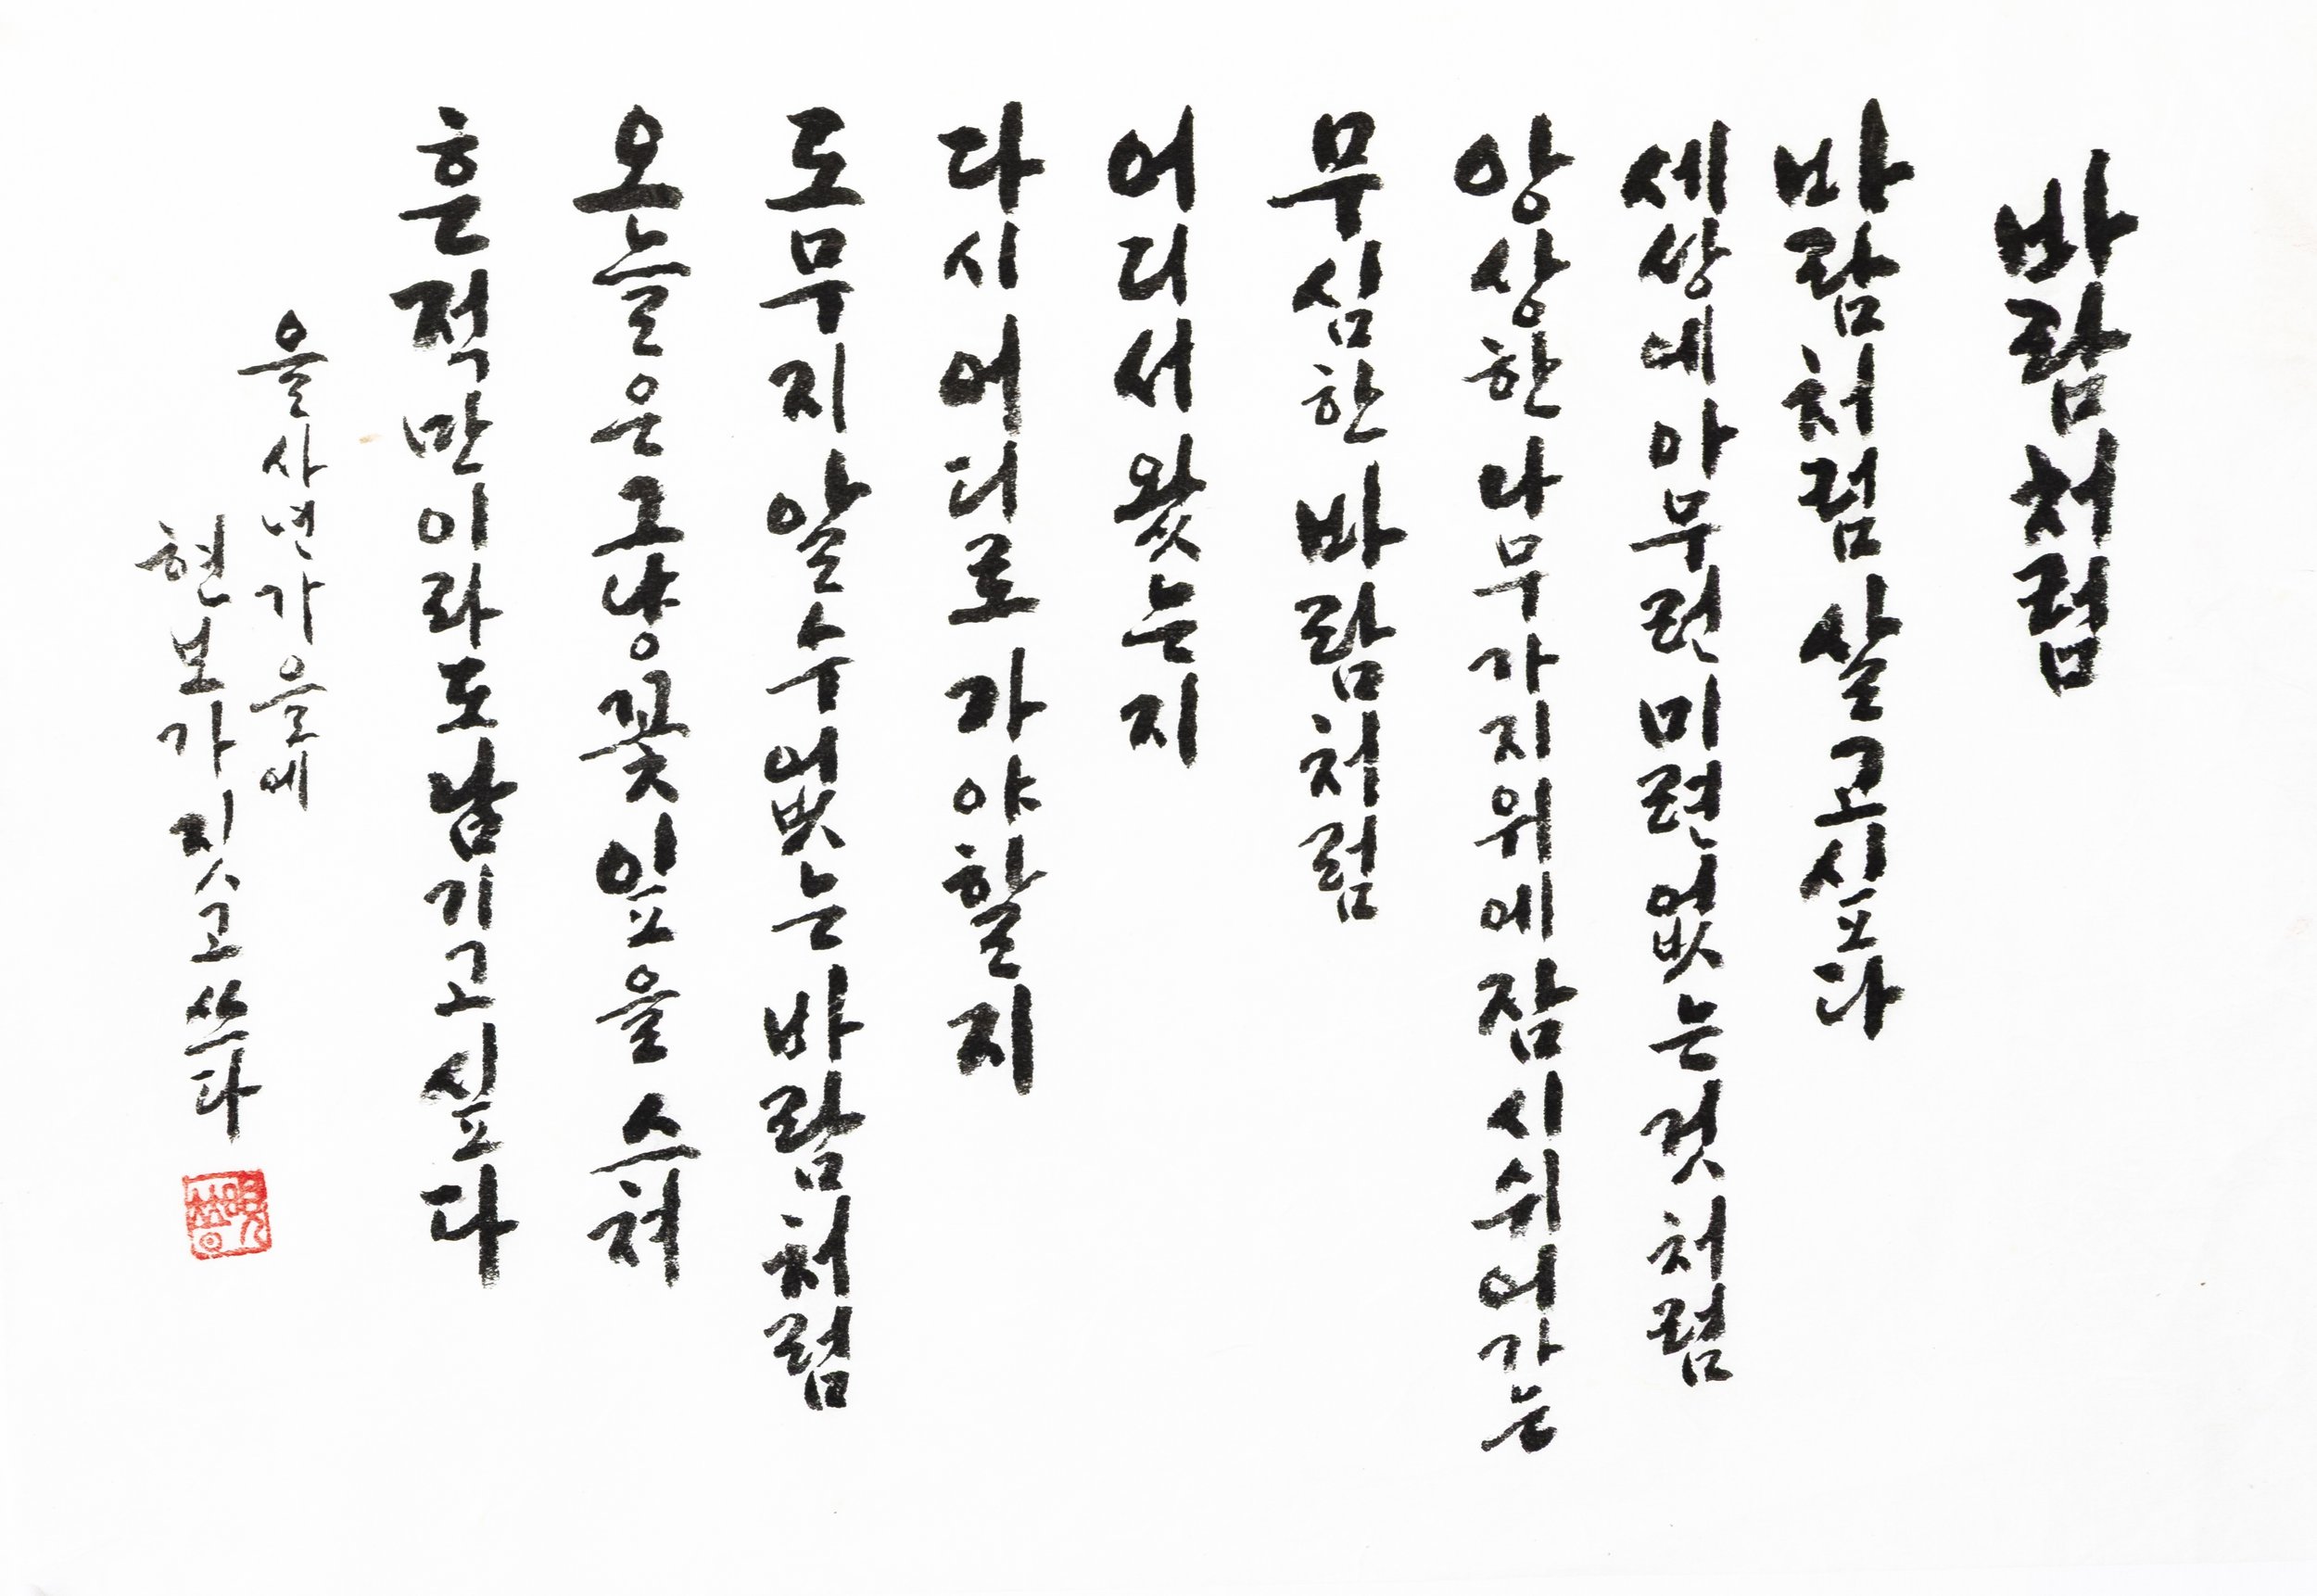 바람처럼
바람처럼 살고 싶다
세상에 아무런 미련 없는 것처럼
앙상한 나무가지 위에 잠시 쉬어가는
무심한 바람처럼
어디서 왔는지
다시 어디로 가야할지
도무지 알 수 없는 바람처럼
오늘은 그냥 꽃잎을 스쳐
흔적만이라도 남기고 싶다
을사년 가을에
현보가 짓고 쓰다